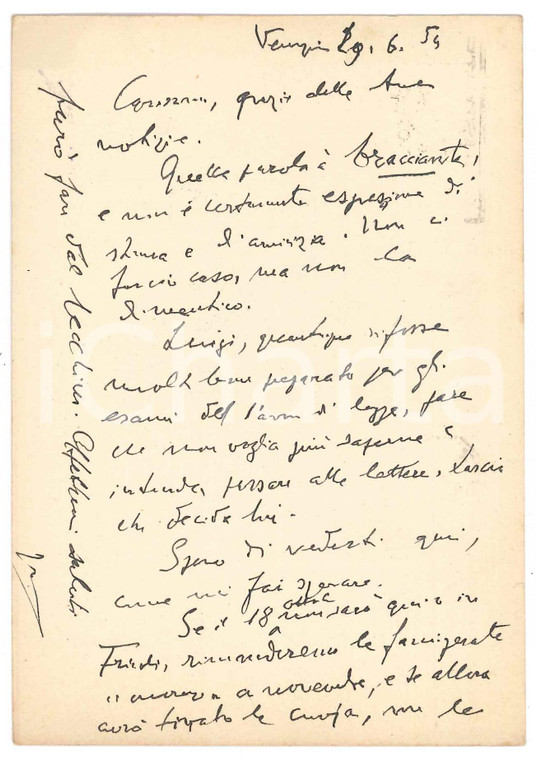 29. 6. 54
Carissimo, grazie delle tue
notizie.
Quella parola è bracciante,
e non è certamente espressione di
stima e d'amicizia. Non ci
faccio caso, ma non la
dimentico.
Luigi, quantunque si fosse
molto bene preparato per gli
esami del I° anno di legge, pare
che non voglia più saperne e
intenda passare alle lettere. Lascio
che decida lui.
Spero di vederti qui,
come mi fai sperare.
Se il 18 non sarò qui o in
Friuli, rimanderemo le famigerate
a novembre, e se allora
avrò tirato le cuoja, me le
farò fare dal becchino. Affettuosi saluti
iCharta